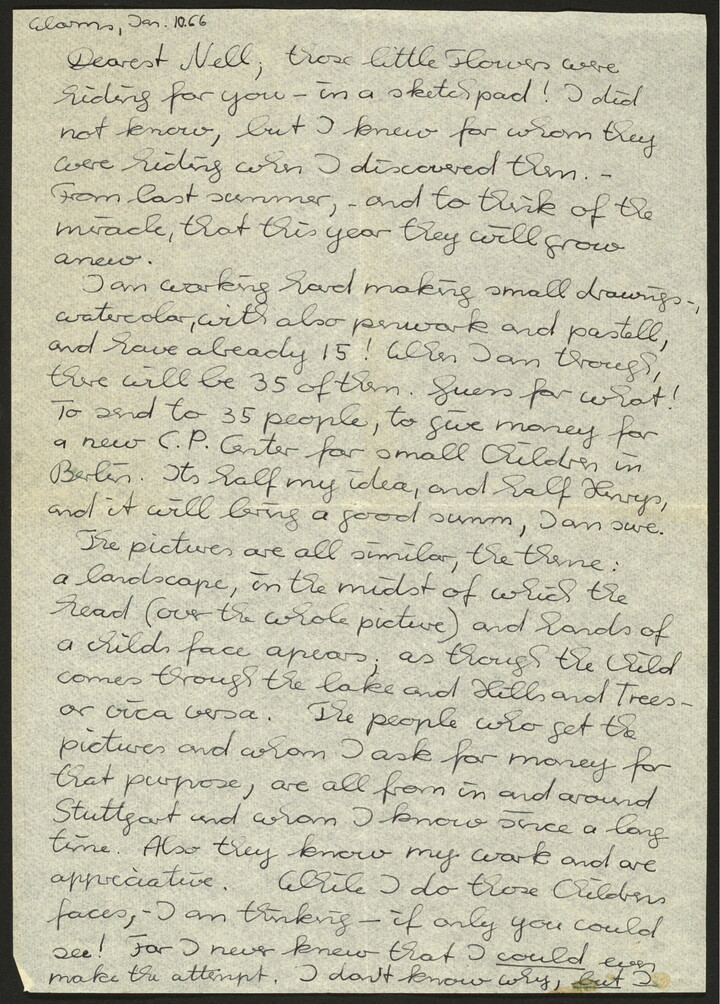 Glarus, Jan. 10.66
Dearest Nell; those little Flowers were
hiding for you – in a sketchpad! I did
not know, but I knew for whom they
were hiding when I discovered them. –
From last summer, – and to think of the
miracle, that this year they will grow
anew.
I am working hard making small drawings –,
watercolar, with also penwork and pastell,
and have already 15! When I am through,
there will be 35 of them. Guess for what!
To send to 35 people, to give money for
a new C.P. Center for small Children in
Berlin. Its half my idea, and half Henrys,
and it will bring a good summ, I am sure.
The pictures are all similar, the theme:
a landscape, in the midst of which the
head (over the whole picture) and hands of
a childs face apears; as though the Child
comes through the lake and Hills and Trees –
or vica versa. The people who get the
pictures and whom I ask for money for
that purpose, are all from in and around
Stuttgart and whom I know since a long
time. Also they know my work and are
appreciative. While I do those Childrens
faces, – I am thinking – if only you could
see! For I never knew that I could even
make the attempt. I don't know why, but I